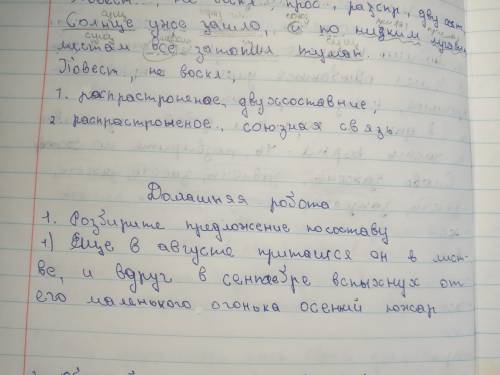 Повест., не воскл., прос., разспр, двусост.
сущ. сущ. союз прилаг.
Солнце уже зашло, и по низким луговым
сущ. сущ.
местам всё затопил туман.
Повест., не воскл.,
1. распрастроненое, двухсоставние,
2 распрастроненое., союзная связь
Домашняя робота
1. Розбирите предложение посоставу
1) Еще в августе притаился он в лист-
ве, и вдруг в сентябре вспыхнух от
его маленького огонька осений пожар